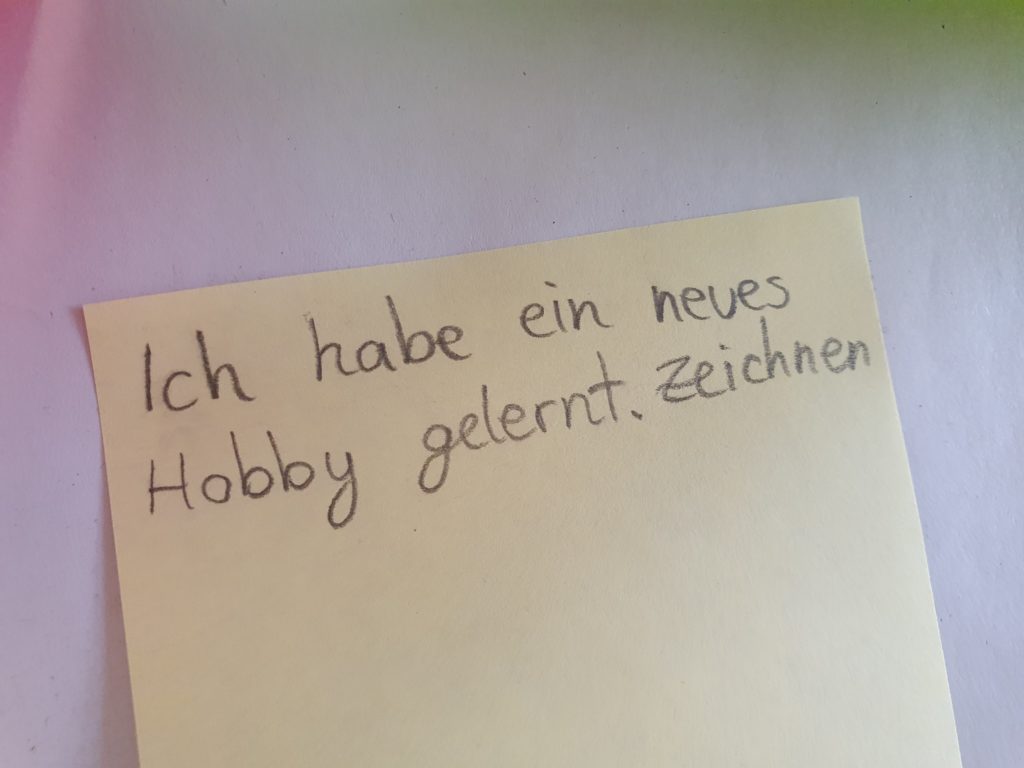 Ich habe ein neues
Hobby gelernt. Zeichnen